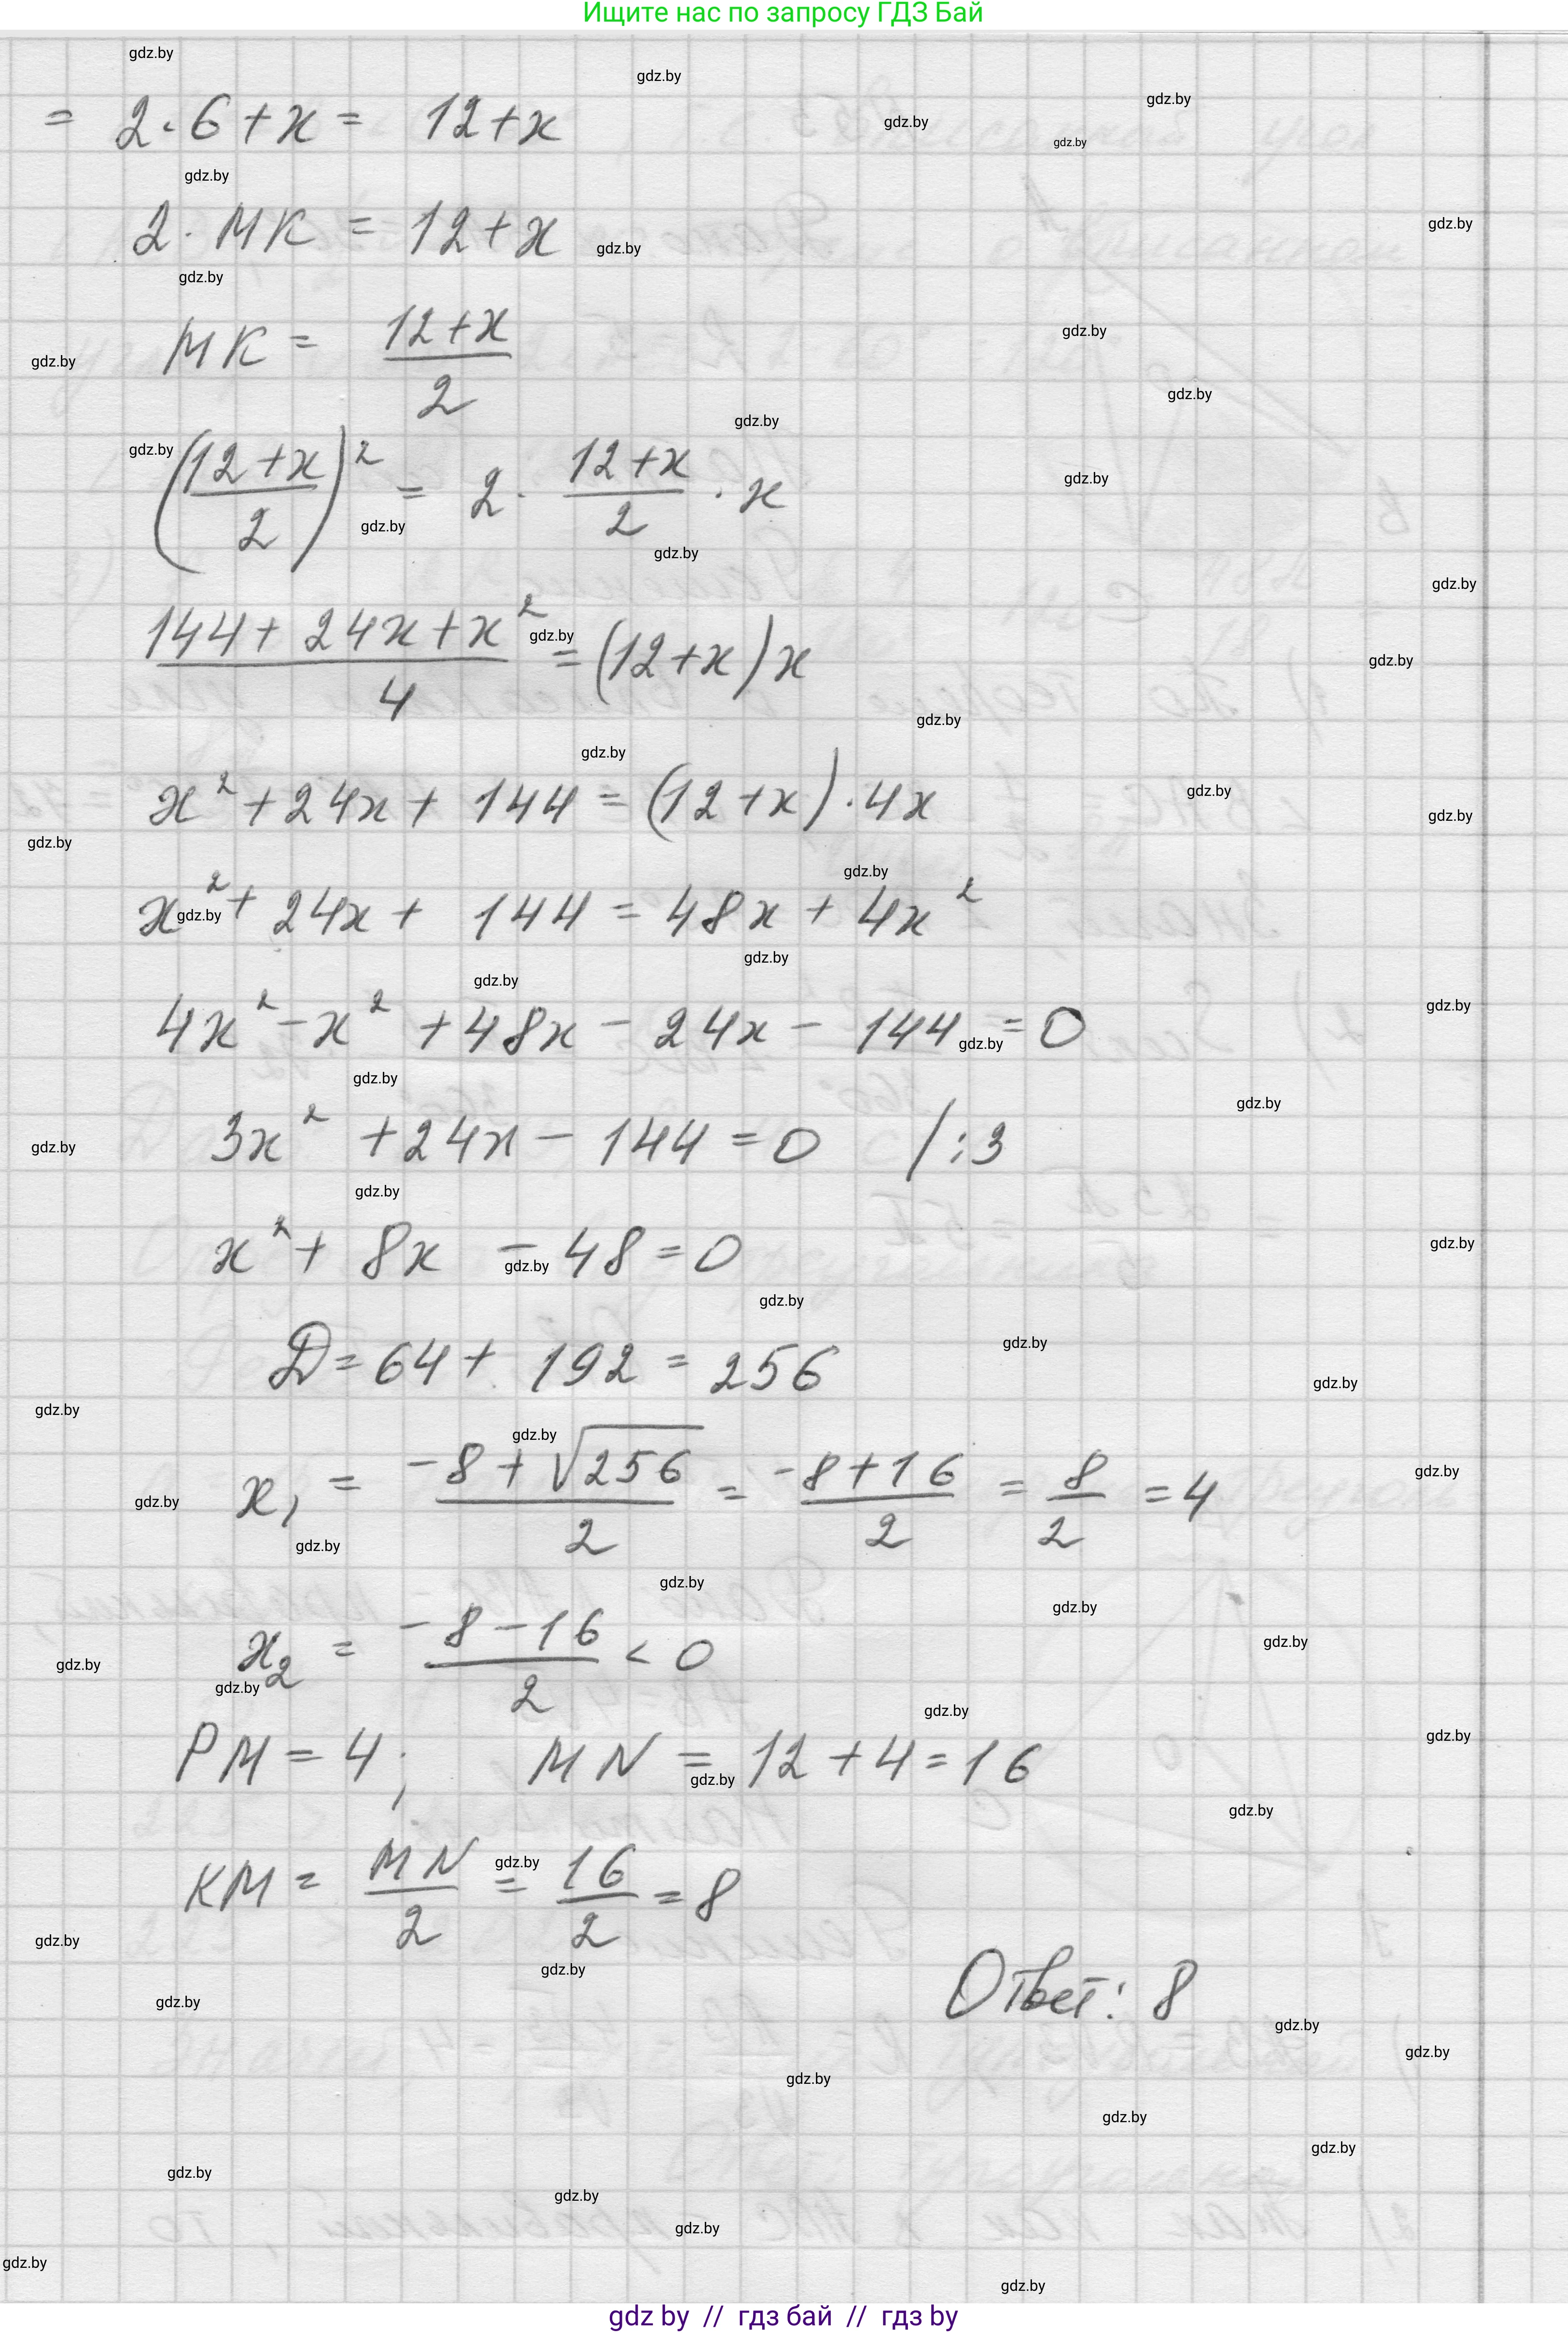 Ищите нас по запросу ГДЗ Бай
= 2·6+x = 12+x
2·MK = 12+x
MK = (12+x)/2
((12+x)/2)² = 2·(12+x)/2·x
(144+24x+x²)/4 = (12+x)x
x²+24x+144 = (12+x)·4x
x²+24x+144 = 48x+4x²
4x²-x²+48x-24x-144=0
3x²+24x-144=0 /:3
x²+8x-48=0
D=64+192=256
x₁ = (-8+√256)/2 = (-8+16)/2 = 8/2 = 4
x₂ = (-8-16)/2 < 0
PM=4; MN=12+4=16
KM = MN/2 = 16/2 = 8
Ответ: 8
gdz by // гдз бай // гдз by